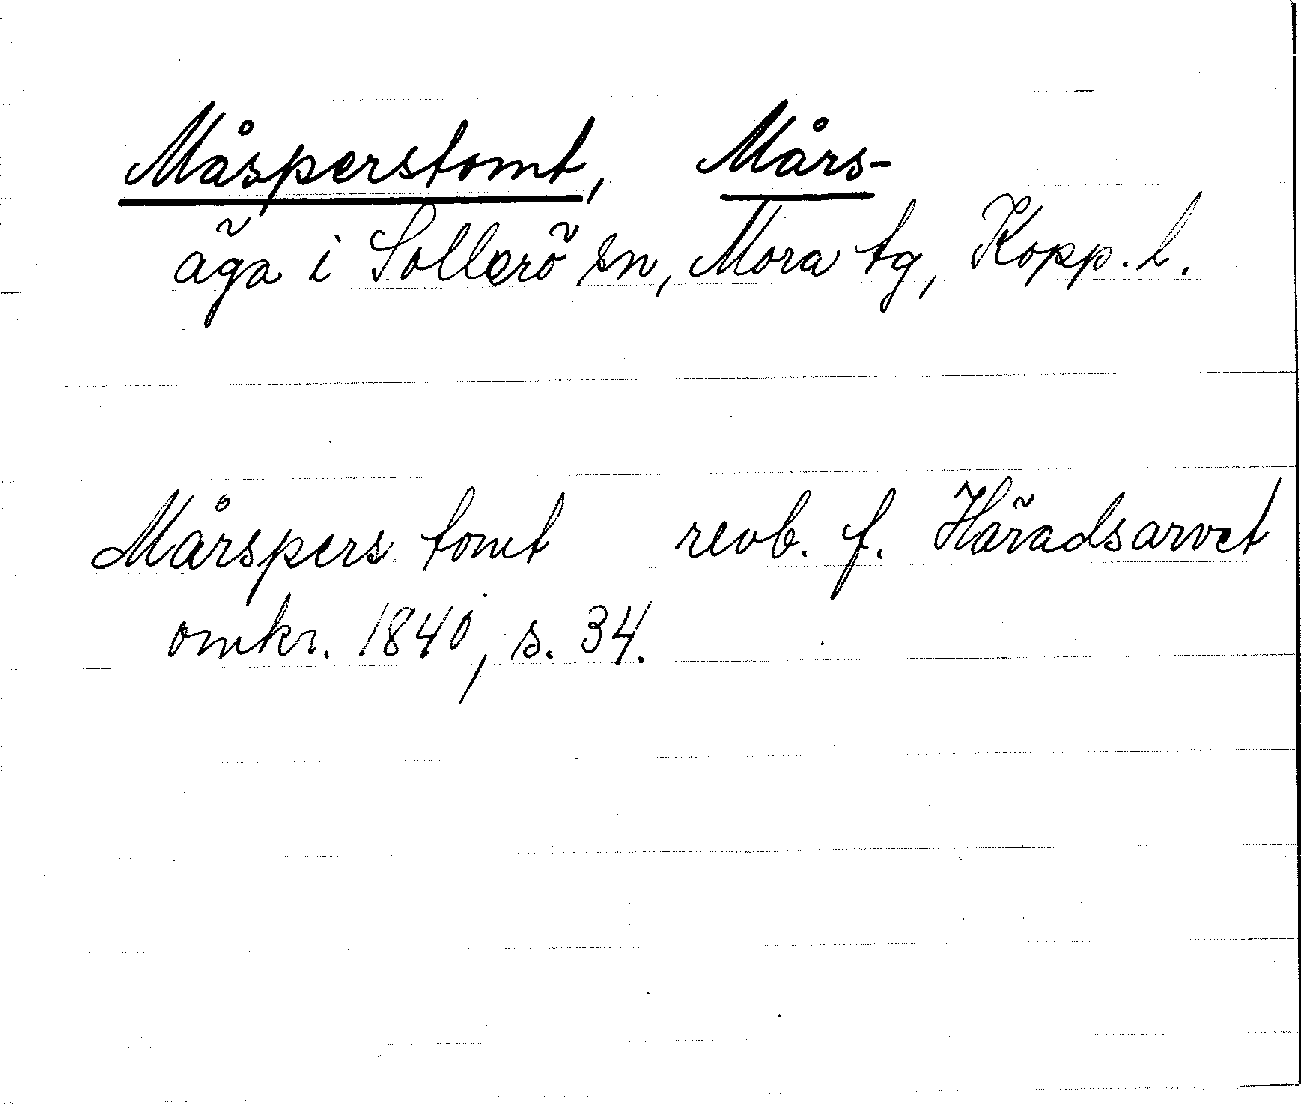 Måsperstomt, Mårs-
äga i Sollerö sn, Mora tg, Kopp. l.
Mårspers tomt revb. f. Häradsarvet
omkr. 1840, s. 34.